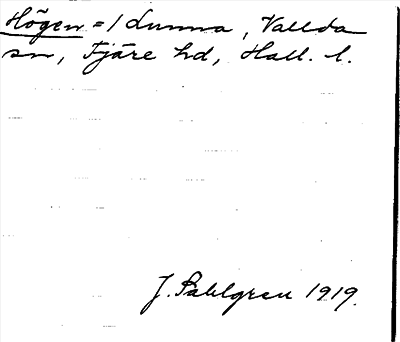 Högen = / Lunna, Vallda
sn, Fjäre hd, Hall. l.
J. Sahlgren 1919.